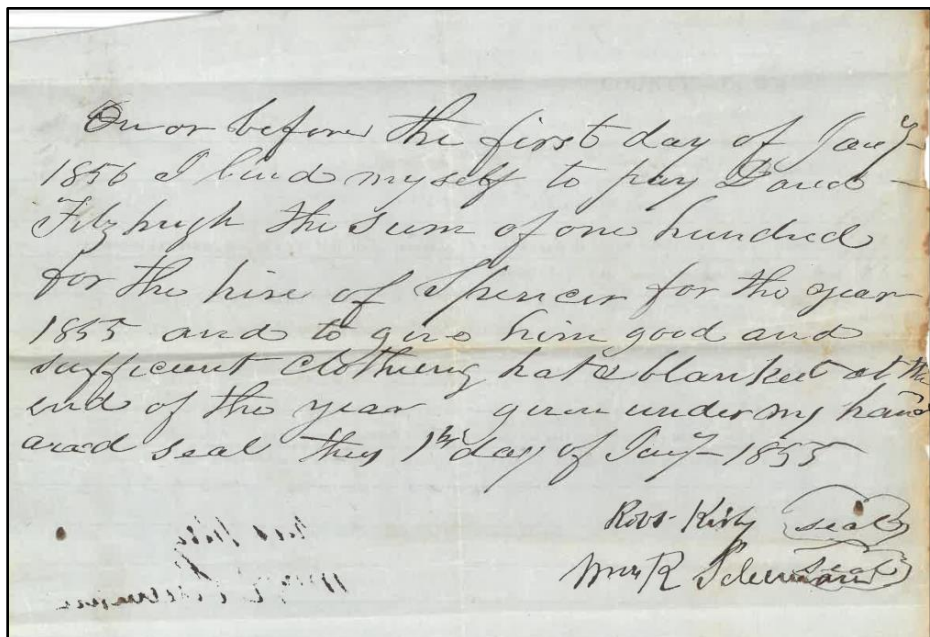 On or before the first day of Jany
1856 I bind myself to pay David
Fitzhugh the sum of one hundred
for the hire of Spencer for the year
1855 and to give him good and
sufficient clothing hat & blanket at the
end of the year given under my hand
and seal this 1st day of Jany 1855
Robt Kirby seal
Wm R seal